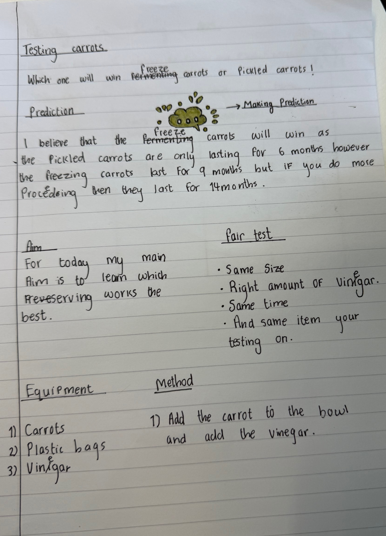 Testing carrots
Which one will win freeze carrots or Pickled carrots!
Prediction
→ Making Prediction
I believe that the freeze carrots will win as
the Pickled carrots are only lasting for 6 months however
the freezing carrots last for 9 months but if you do more
Proceđring then they last for 14 months.
Aim
For today my main
Aim is to learn which
Preveserving works the
best.
fair test
· Same Size
· Right amount of vinegar.
· Same time
· And same item your
testing on.
Equipment
1) Carrots
2) Plastic bags
3) Vinegar
Method
1) Add the carrot to the bowl
and add the vinegar.